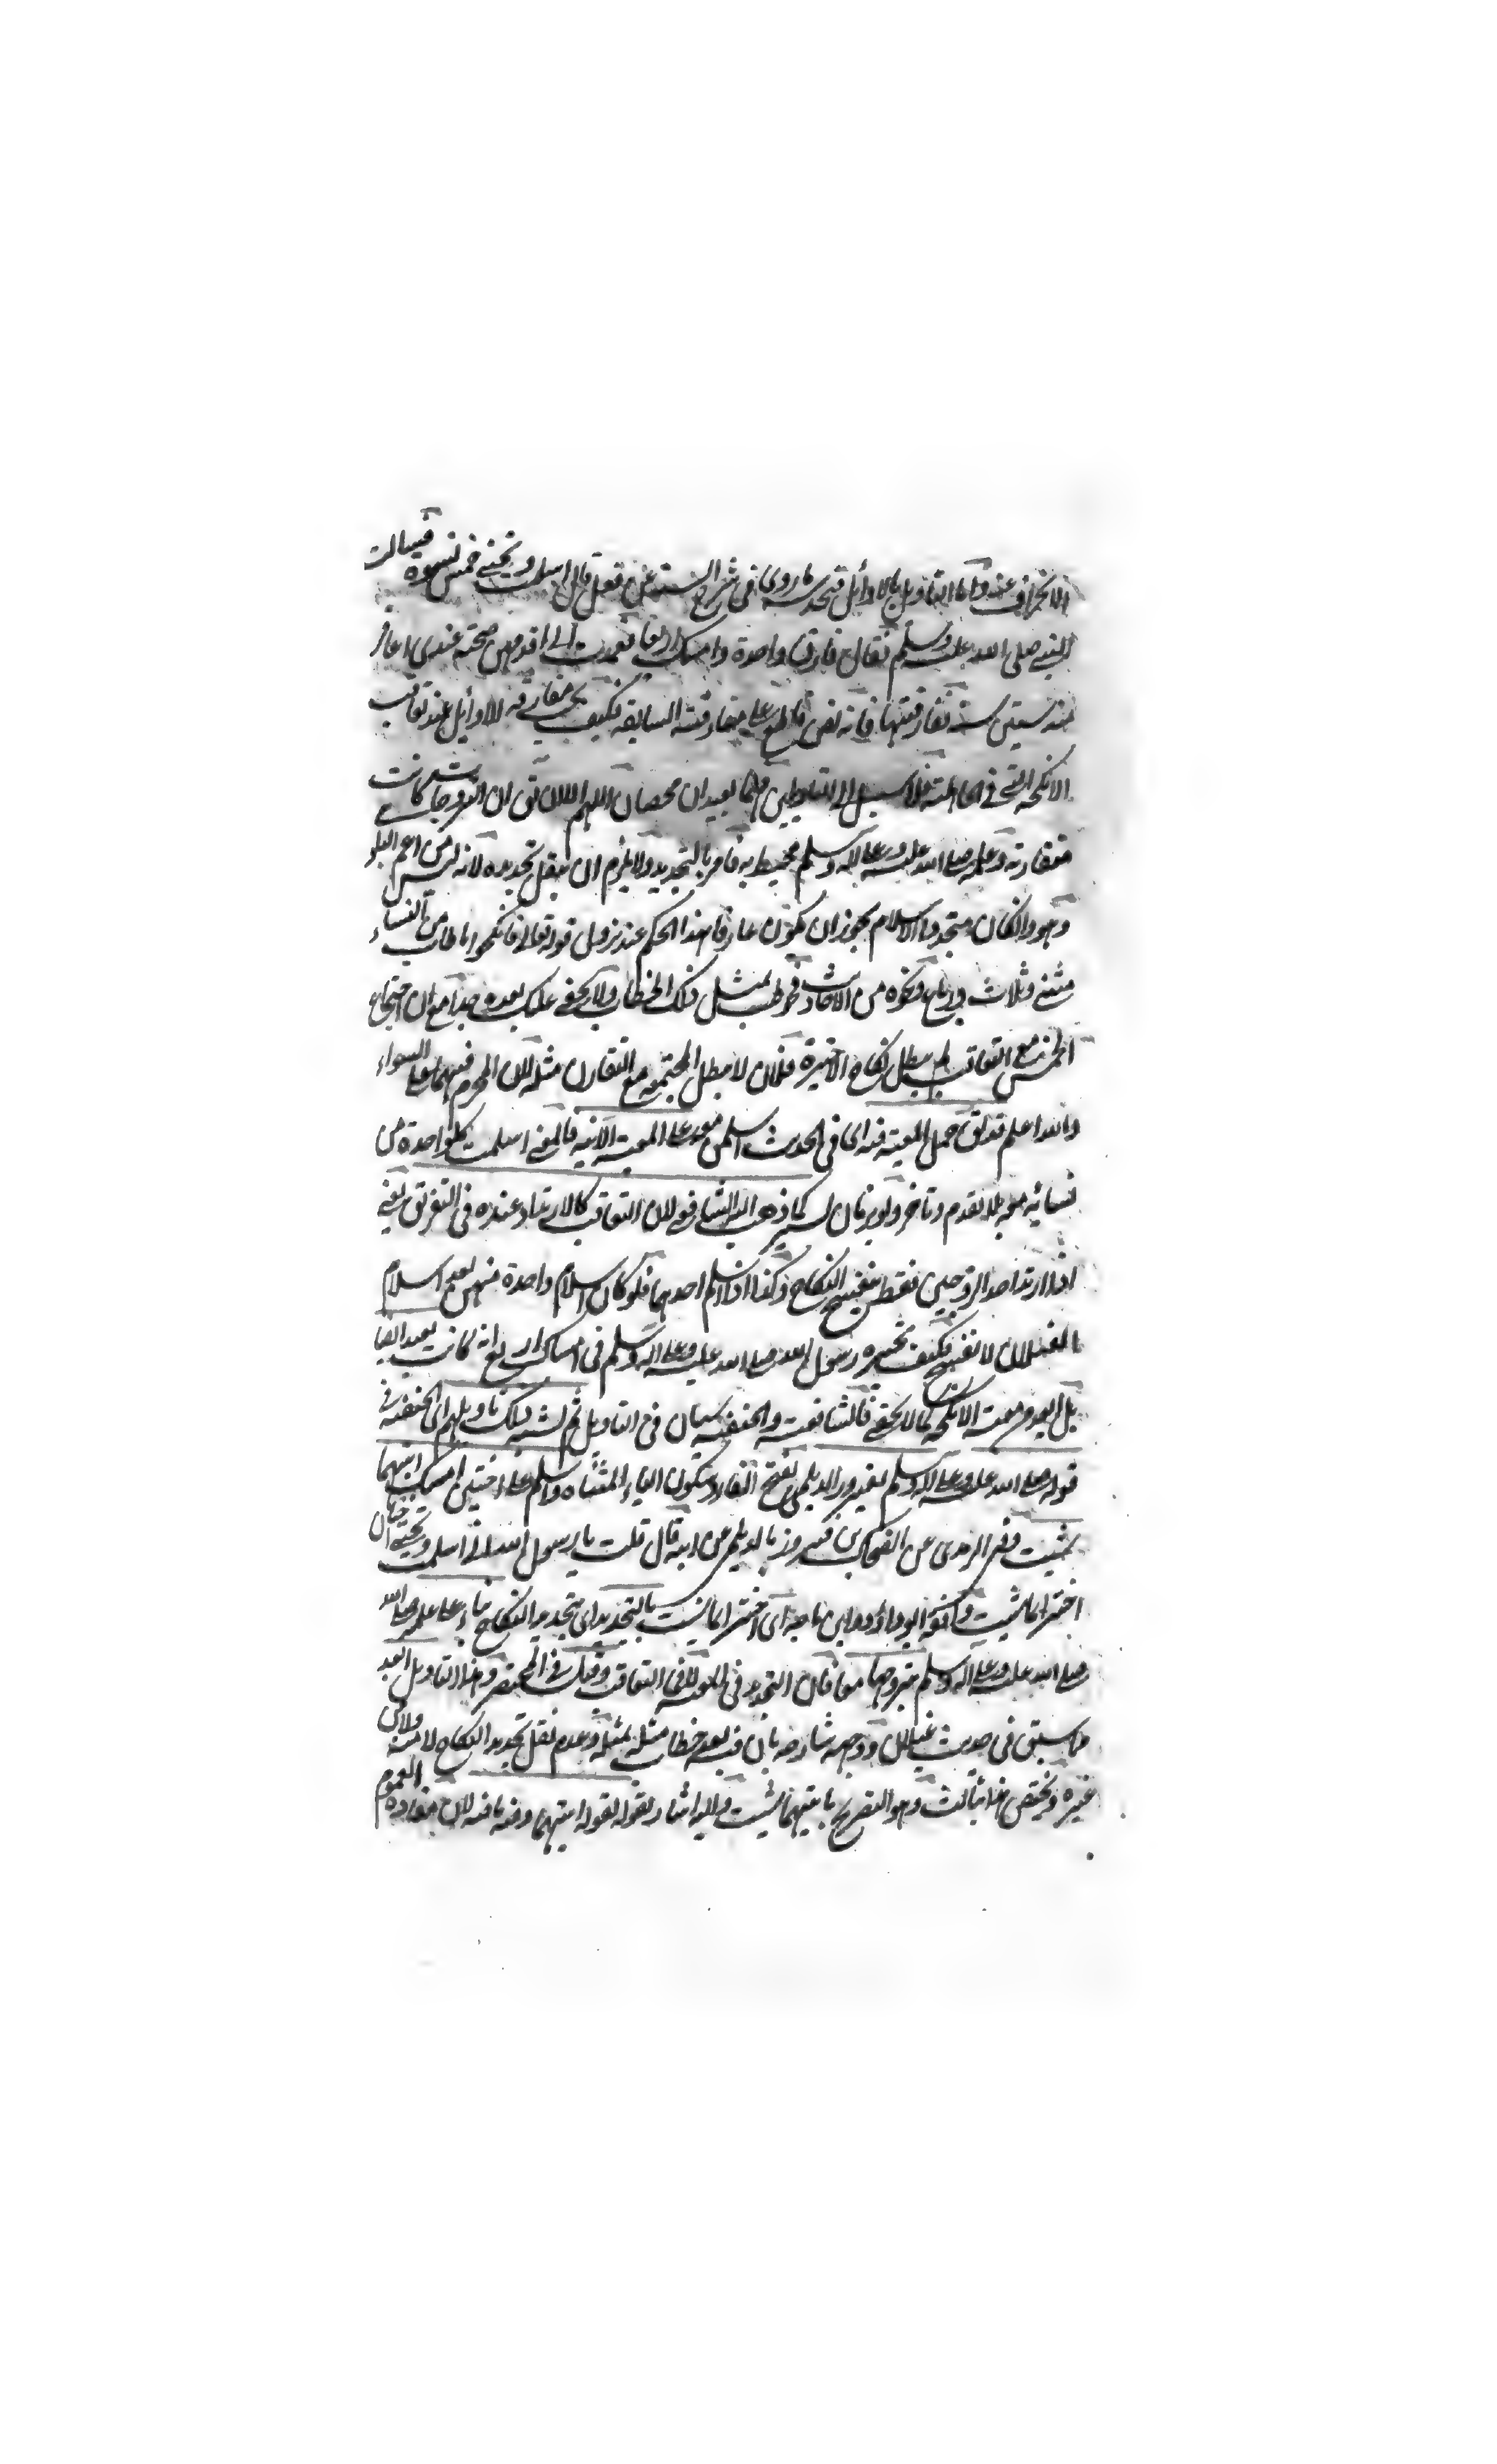 الانحراف عنه واما التاويل بالاوائل فيحد ما روى فى شرح السنة عن نوفل قال اسلمت وتحتى خمس نسوة فسالت
النبى صلى الله عليه وسلم فقال فارق واحدة وامسك اربعا فعمدت الى اقدمهن صحبة عندى عاقر
منذ ستين سنة ففارقتها فانه نص قاطع على مفارقته السابقة فكيف مفارقة الاوائل عند تعاقب
الانكحة التى فى فلا سبيل الى التاويلين فانهما بعيدان اللهم الا ان ان التزوجات كانت
متقارنة وعلمه صلى الله عليه وعلى اله وسلم محيط به فامر بالتجديد ولا يلزم ان ينقل تجديده لانه ليس من اعم البلوى
وهو وان كان متجدد الاسلام يجوز ان يكون عارفا بهذا الحكم عند نزول قوله تعالى فانكحوا ما طاب من النساء
مثنى وثلاث ورباع ونحوه من الاحاديث فخوطب بمثل ذلك الخطاب ولا يخفى عليك بعده جدا مع ان اجتماع
الخمس مع التعاقب لم يبطل نكاح الاخيرة فلان لا يبطل المجتمعة مع التقارن مثله لان المحرم فيهما على السواء
والله اعلم قد حمل المعية فيه اى فى الحديث اسلمن معه على المعية الانية فالمعنى اسلمت كل واحدة من
نسائه معه بلا تقدم وتاخر ولو بزمان يسير كما ذهب اليه الشافعى لان التعاقب كالارتداد عنده فى التفريق يعنى
اذا ارتد احد الزوجين فقط ينفسخ النكاح وكذا اذا اسلم احدهما فلو كان اسلام واحدة منهن بعد اسلام
الغيلان لانفسخ فكيف تخييره رسول الله صلى الله عليه وعلى اله وسلم فى امساك اربع انه كانت بعيد ايضا
بل ابعد من معية الانكحة كما لا يخفى فالشافعية والحنفية سيان فى التاويل ثم يشبه ذلك تاويلهم اى الحنفية فى
قوله صلى الله عليه وعلى اله وسلم لفيروز الديلمى بفتح الفاء وسكون الياء المثناه واسلم على اختين امسك ايتهما
شيت وفى الترمذى عن الضحاك بن فيروز الديلمى عن ابيه قال قلت يا رسول الله انى اسلمت وتحتى اختان قال
اختر ايتهما شيت وابو داؤد وابن ماجه اى اختر ايتهما شيت بالتجديد اى بتجديد النكاح بناء على علمه صلى الله
صلى الله عليه وعلى اله وسلم بتزوجهما معا فان التجديد فى المعية لا فى التعاقب وقيل فى المختصر وهذا التاويل ابعد
مما سبق فى حديث غيلان ووجهه شارحه بان فيه بعد خطاب مثله بمثله وعدم نقل تجديد النكاح لا منه ولا من
غيره ويختص بهذا ثالث وهو التصريح بايتهما شيت واليه اشار بقوله لقوله ايتهما وفيه ما فيه لان مفاده العموم